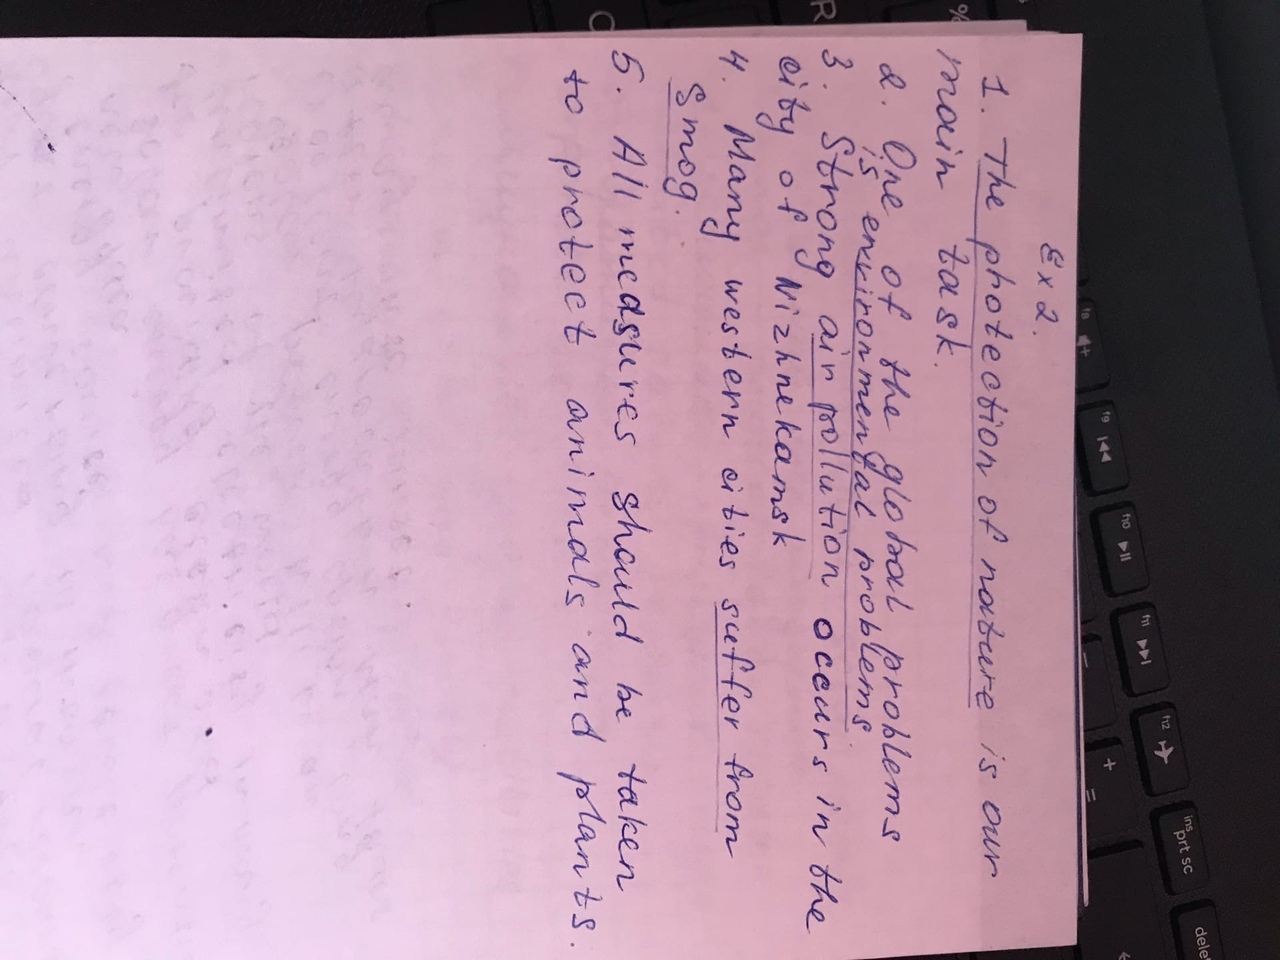 Ex 2.
1. The photection of nature is our
main task.
2. One of the global problems
is environmental problems.
3. Strong air pollution occurs in the
city of Nizhnekamsk
4. Many western cities suffer from
Smog.
5. All measures should be taken
to protect animals and plants.
%
R
C
f8
f9
f10
f11
f12
+
=
ins
prt sc
delet